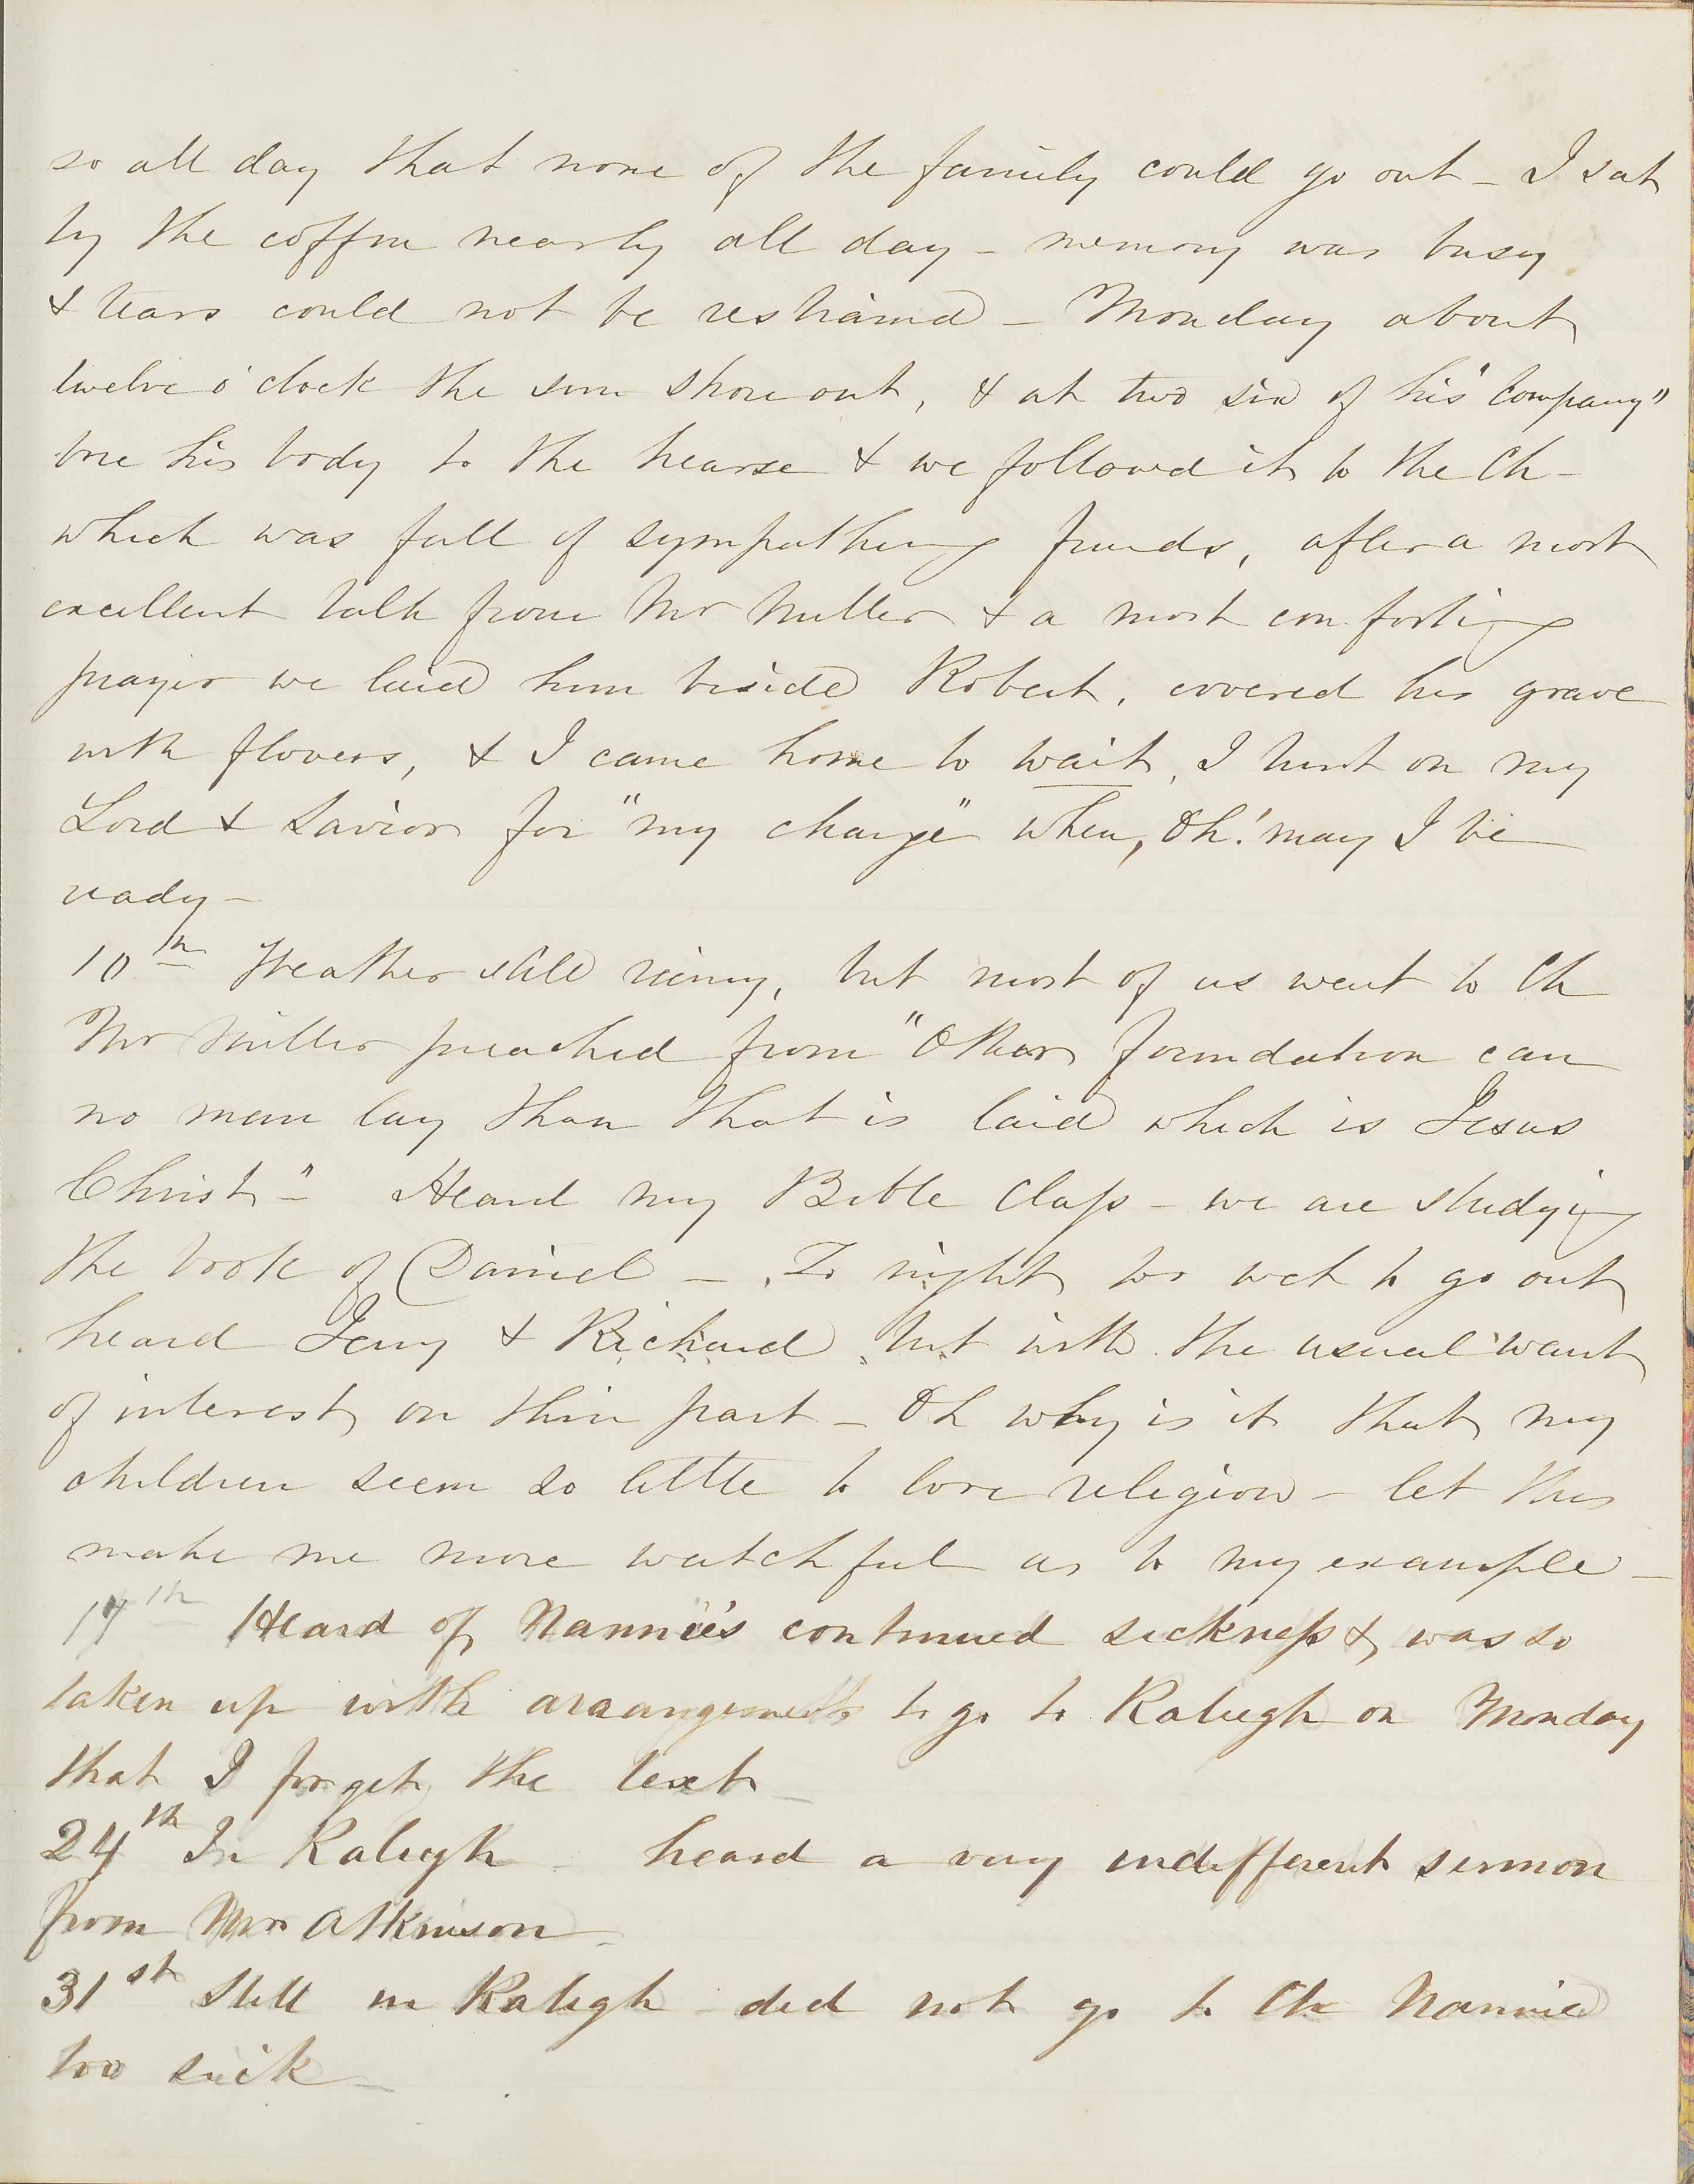 so all day that none of the family could go out - I sat
by the coffin nearly all day - memory was busy
& tears could not be restrained - Monday about
twelve o'clock the sun shone out, & at two six of his "Company"
bore his body to the hearse & we followed it to the Ch-
which was full of sympathing friends, after a most
excellent talk from Mr Miller & a most comforting
prayer we laid him beside Robert, covered his grave
with flowers, & I came home to wait, I trust on my
Lord & Savior for "my change" when, Oh! may I be
ready -
10th Weather still rainy, but most of us went to Ch
Mr Miller preached from "Other foundation can
no man lay than that is laid which is Jesus
Christ" - Heard my Bible Class - we are studying
the book of Daniel - To night too wet to go out
heard Jeny & Richard but with the usual want
of interest on their part - Oh why is it that my
children seem so little to love religion - let this
make me more watchful as to my example -
17th Heard of Nannie's continued sickness & was so
taken up with arrangements to go to Raleigh on Monday
that I forget the text -
24th In Raleigh - heard a very indifferent sermon
from Mr Atkinson -
31st Still in Raleigh - did not go to Ch Nannie
too sick -